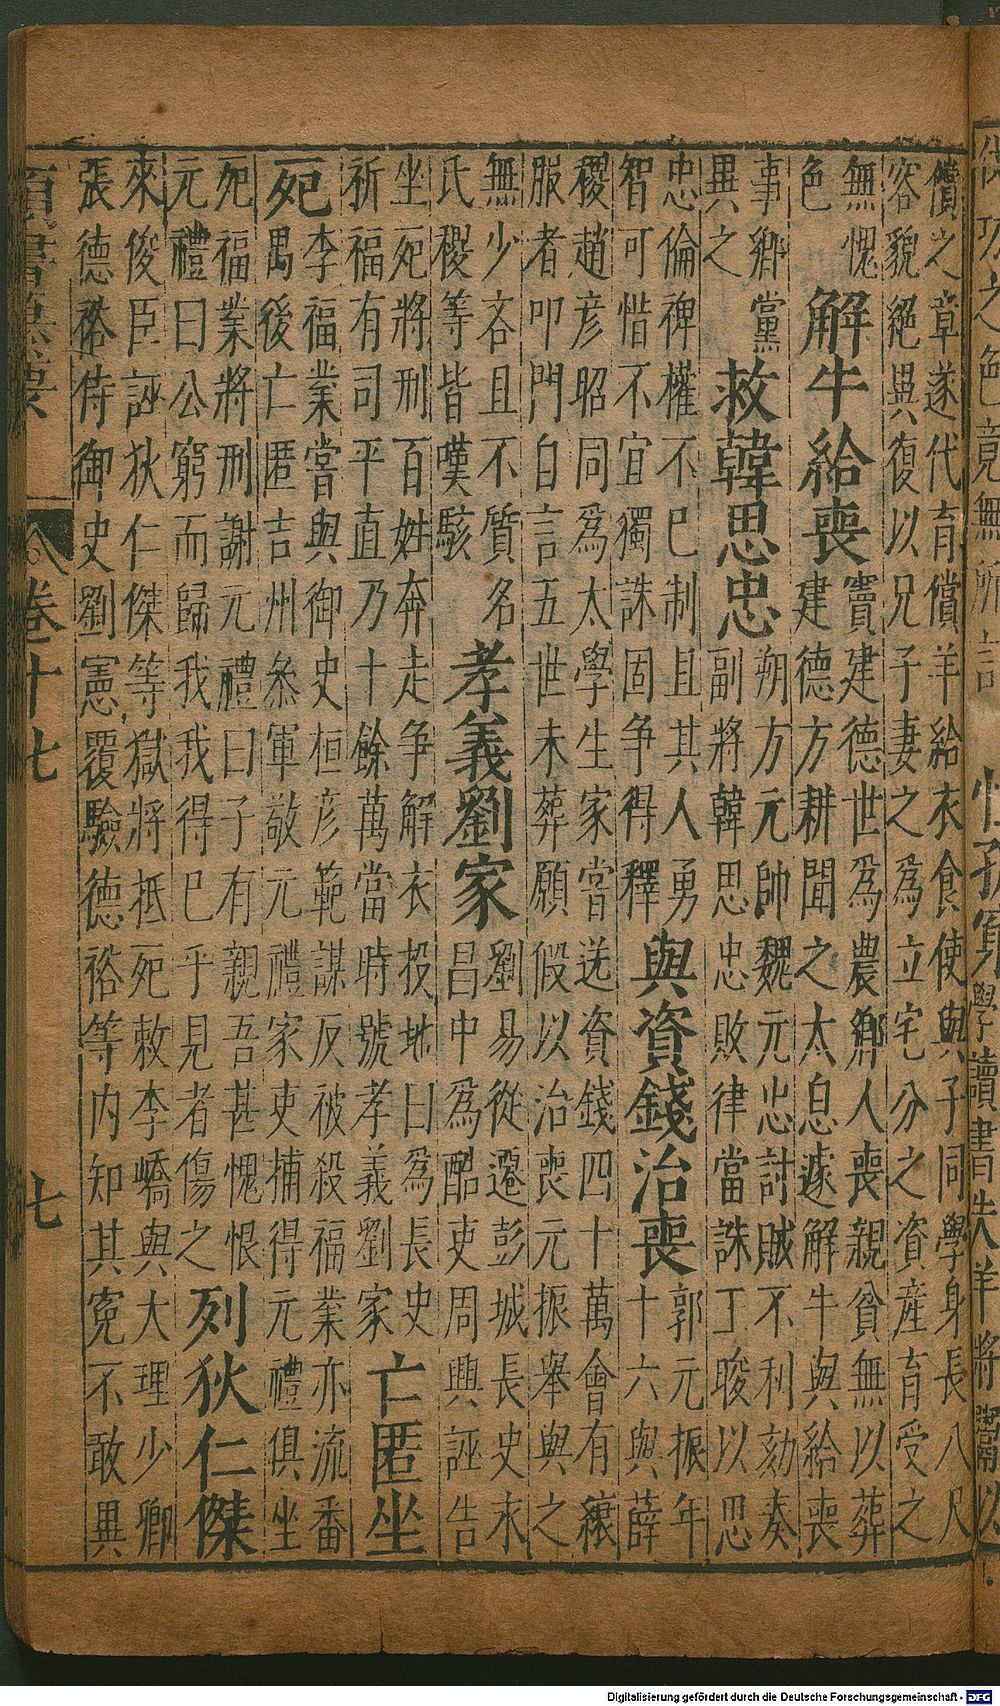 償之章遂代育償羊給衣食使與子同學身長八尺
容貌絕異復以兄子妻之爲立宅分之資産育受之
無愧
色
解牛給喪
竇建德世爲農鄉人喪親貧無以葬
建德方耕聞之太息遽解牛與給喪
事鄉黨
異之
救韓思忠
朔方元帥魏元忠討賊不利劾奏
副將韓思忠敗律當誅丁晙以思
忠倫禆權不已制且其人勇
智可惜不宜獨誅固争得釋
與資錢治喪
郭元振年
十六與薛
稷趙彦昭同爲太學生家嘗送資錢四十萬會有縗
服者叩門自言五世未葬願假以治喪元振舉與之
無少吝且不質名
氏稷等皆嘆駭
孝義劉家
劉易從遷彭城長史永
昌中爲酷吏周興誣告
坐死將刑百姓奔走争解衣投地曰爲長史
祈福有司平直乃十餘萬當時號孝義劉家
亡匿坐
死
李福業嘗與御史桓彦範謀反被殺福業亦流番
禺後亡匿吉州叅軍敬元禮家吏捕得元禮俱坐
死福業將刑謝元禮曰子有親吾甚愧恨
元禮曰公窮而歸我我得已乎見者傷之
列狄仁傑
來俊臣誣狄仁傑等獄將抵死敕李嶠與大理少卿
張德裕侍御史劉憲覆驗德裕等内知其寃不敢異
卷十七
七
Digitalisierung gefördert durch die Deutsche Forschungsgemeinschaft - DFG